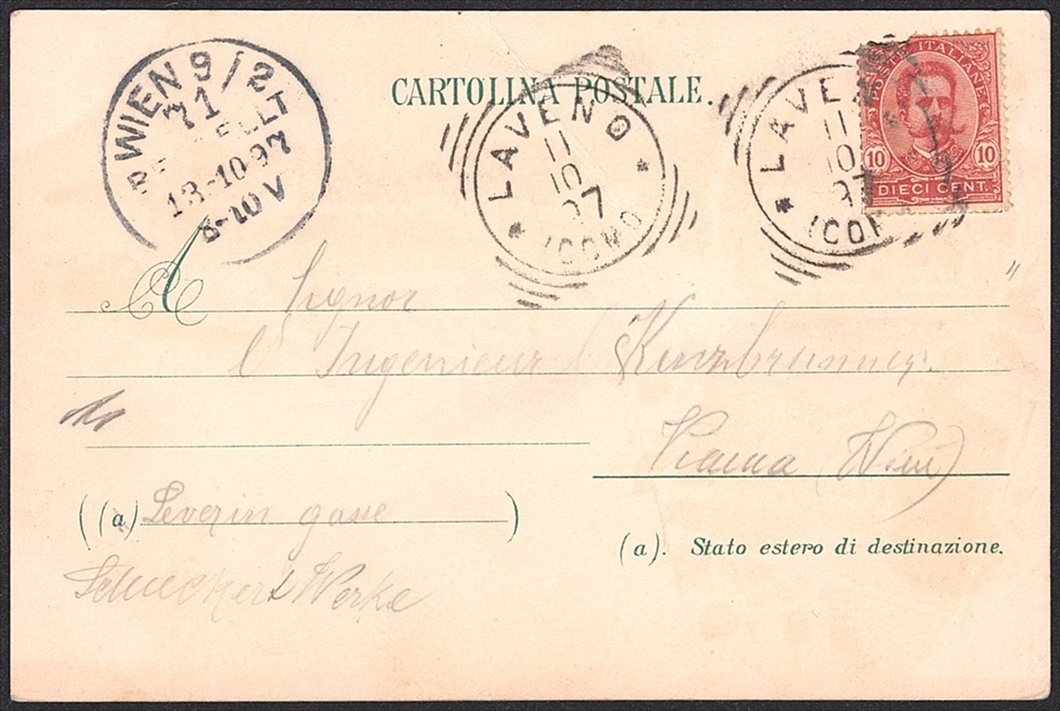 CARTOLINA POSTALE.
WIEN 9/2
71
BESTELLT
13-10-97
8-10V
LAVENO
11
10
97
(COMO)
LAVENO
11
10
97
(COM
POSTE ITALIANE
10 10
DIECI CENT.
A Signor
l'Ingenieur Kurzbrunner.
Vienna (Wien)
(a) Severin gasse
Schuckert Werke
(a). Stato estero di destinazione.